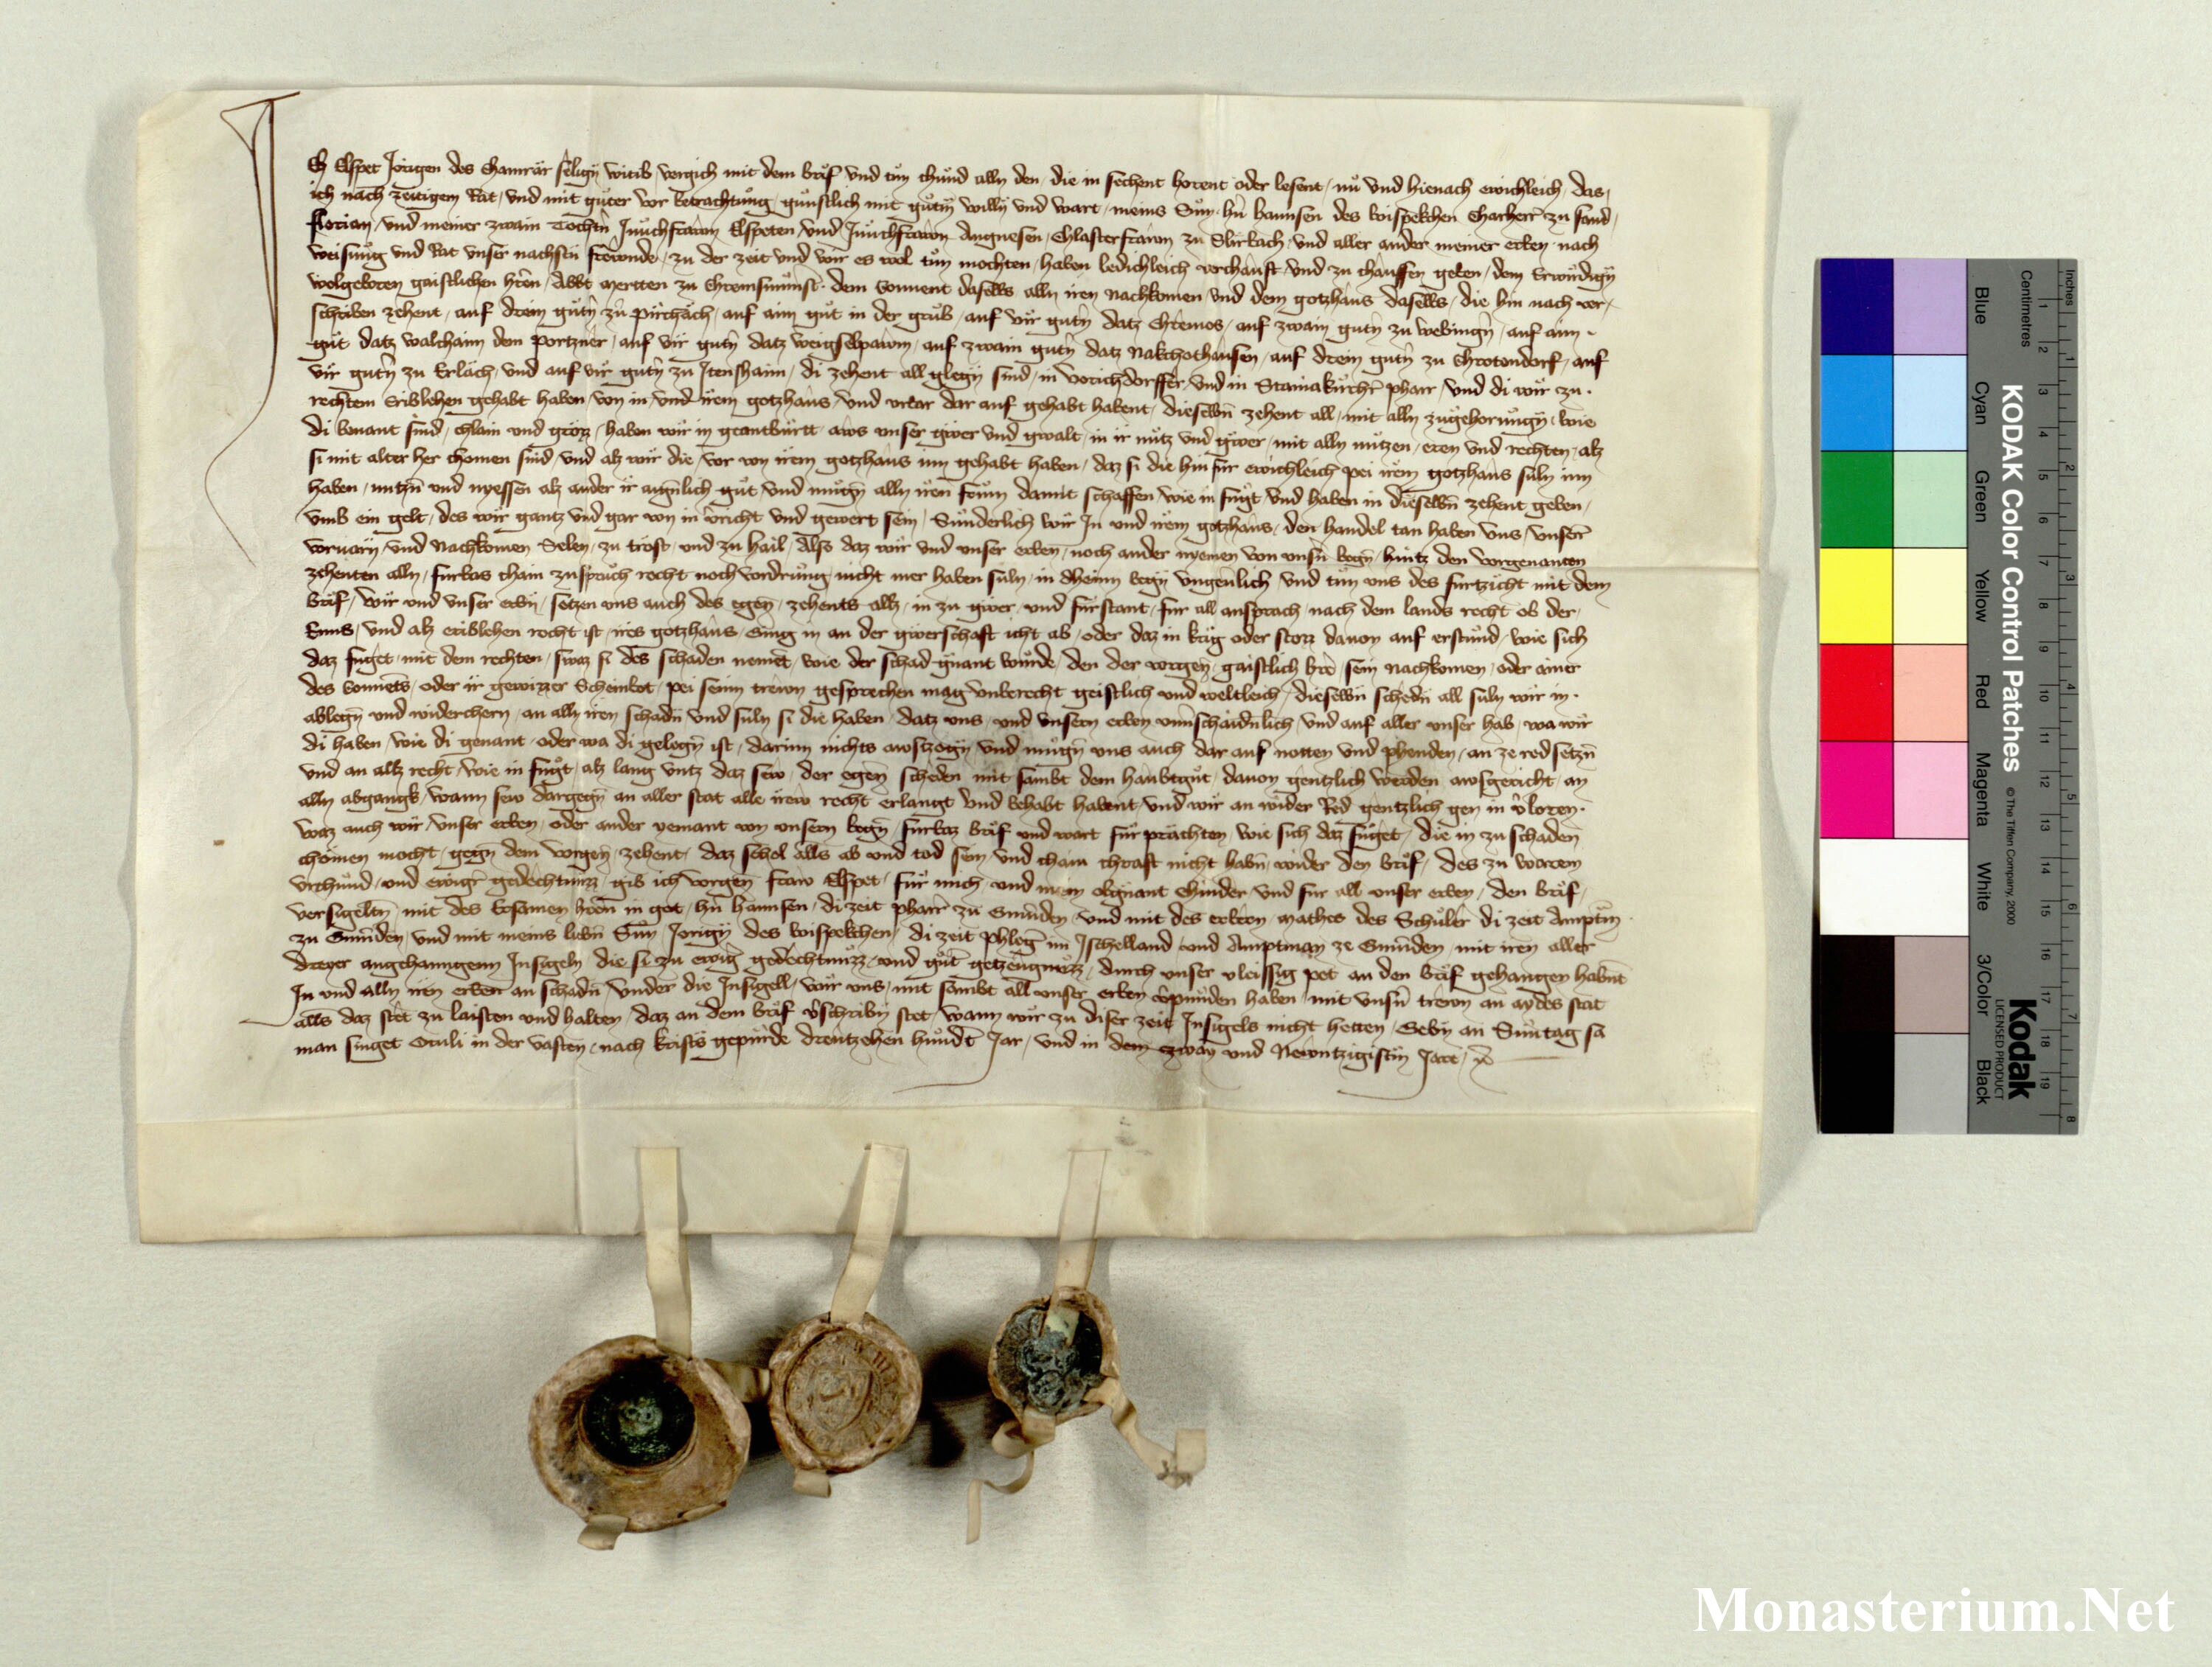 Ich Elspet Jörigen des Chamrär sëligñ witib vergich mit dem brif und tůn chůnd allñ den die in sechent hörent oder lesent nů und hienach ewichleich das
ich nach zeitigem Rat und mit gůter vor betrachtůng gůnstlich mit gůtm willñ und wart meins Sůn hñ hannsen des weispekchen Charherr zu sand
florian und meiner zwain Tochtñ Junchfrawn Elspeten und Junchfrawn Angnesen Chlosterfrawn zu Slirbach und aller ander meiner erben nach
weisung und Rat unser nachstñ frewnde zu der zeit und wir es wol tůn mochten haben ledichleich verchauft und zu chauffen geben dem Erwirdigñ
wolgeboren gaistlichen hrën Abbt mertten zu Chremsmůnst dem Convent dasells allñ iren nachkomen und dem gotzhaus dasells die hin nach ver
schriben zehent auf drein gůtñ zů pirchäch auf aim gůt in der grůb auf vir gutñ datz Chremos auf zwain gutñ zu webingñ auf aim
gůt datz walchaim dem portzner auf vir gutñ datz weigselpawm auf zwain gutñ datz Nakchothausen auf drein gutñ zu Chrotondorf auf
vir gutñ zu Erläch und auf vir gutñ zu Jtenshaim di zehent all glegñ sind in Vorichdorffer und in Stainakircher pharr und di wir zu
rechtem Eriblehen gehabt haben von in und irem gotzhaus und urbar dar auf gehabt habent dieselbñ zehent all mit allñ zugehorungñ wie
di benant sind chlain und grozz haben wir in geantburtt aws unser gwer und gwalt in ir nutz und gwer mit allñ nutzen eren und rechten alz
si mit alter her chomen sind und alz wir die vor von irem gotzhaus inn gehabt haben daz si die hin fur ewichleich pei irem gotzhaus suln inn
haben nutzñ und nyessen alz ander ir aignlich gůt und mugñ allñ iren frum damit schaffen wie in fugt und haben in dieselbñ zehent geben
umb ein gelt des wir gantz und gar von in vricht und gewert sein Sunderlich wir In und irem gotzhaus den handel tan haben uns unser
vorvarñ und Nachkomen Selen zu trost und zu hail Also daz wir und unser erben noch ander nyemen von unsñ wegñ hintz den vorgenanten
zehenten allñ furbas chain zuspruch recht noch vordrung nicht mer haben suln in dhainn wegñ ungeñlich und tůn uns des furtzicht mit dem
brif wir und unser erbñ setzen uns auch des egeñ zehents allz in zu gwer und fürstant für all ansprach nach dem lands recht ob der
Enns und alz eriblehen recht ist ires gotzhaus Ging in an der gwerschaft icht ab oder daz in krig oder storz davon auf erstund wie sich
daz fuget mit dem rechten swaz si des schaden nement wie der schad gnant wurde den der vorgeñ gaistlich hre sein nachkomen oder ainer
des Convents oder ir gewizzer Scheinbot pei seinn trewn gesprechen mag unberecht geistlich und weltleich dieselbñ schedñ all suln wir in
ablegñ und widerchern an allñ iren schadñ und suln si die haben datz uns und unsern erben unverschaidnlich und auf aller unser hab wa wir
di haben wie di genant oder wa di gelegñ ist darinn nichts awsczogñ und mugñ uns auch dar auf notten und phenden an ze red setzñ
und an allz recht wie in fugt alz lang untz daz sew der egeñ scheden mit sambt dem haubtgůt davon gentzlich werden awsgericht an
allñ abgangk wann sew dargegñ an aller stat alle irew recht erlangt und behabt habent und wir an wider Red gentzlich gen in vloren
waz auch wir unser erben oder ander yemant von unsern wegñ furbaz brif und wart für prächten wie sich daz füget die in zu schaden
chömen mocht gegñ dem vorgeñ zehent daz schol alls ab und tod sein und chain chraft nicht habñ wider den brif des zu warem
urchund und ewigr gedechtnuzz gib ich vorgeñ fraw Elspet für mich und mein obgnant chinder und für all unser erben den brif
versigeltñ mit des Ersamen hren in got hñ hannsen di zeit pharrr zu Gmunden und mit des erbern mathes des Schuler di zeit Amptm
zu Gmunden und mit meins liebñ Sun Jorigñ des weispekchen di zeit phleg im Jschelland und Amptman ze Gmunden mit iren aller
dreyer angehanngenn Insigeln die si zu ewigr gedechtnuzz und gůtr getzeugnuzz durch unser vleissig pet an den brif gehangen habnt
In und allñ iren erben an schadñ under die Insigell wir uns mit sambt all unser erben vpunden haben mit unsñ trewn an aydes stat
alls daz stet zu laisten und halten daz an dem brif vschribñ stet wann wir zu diser zeit Insigels nicht hetten Gebñ an Suntag sa
man singet Oculi in der vasten nach krists gepurde drewtzehen hundt Jar und in dem zway und Newntzigistm Jare
Inches
Centimetres
Blue Cyan Green Yellow Red Magenta White 3/Color Black
KODAK Color Control Patches © The Tiffen Company, 2000
Kodak
LICENSED PRODUCT
Monasterium.Net